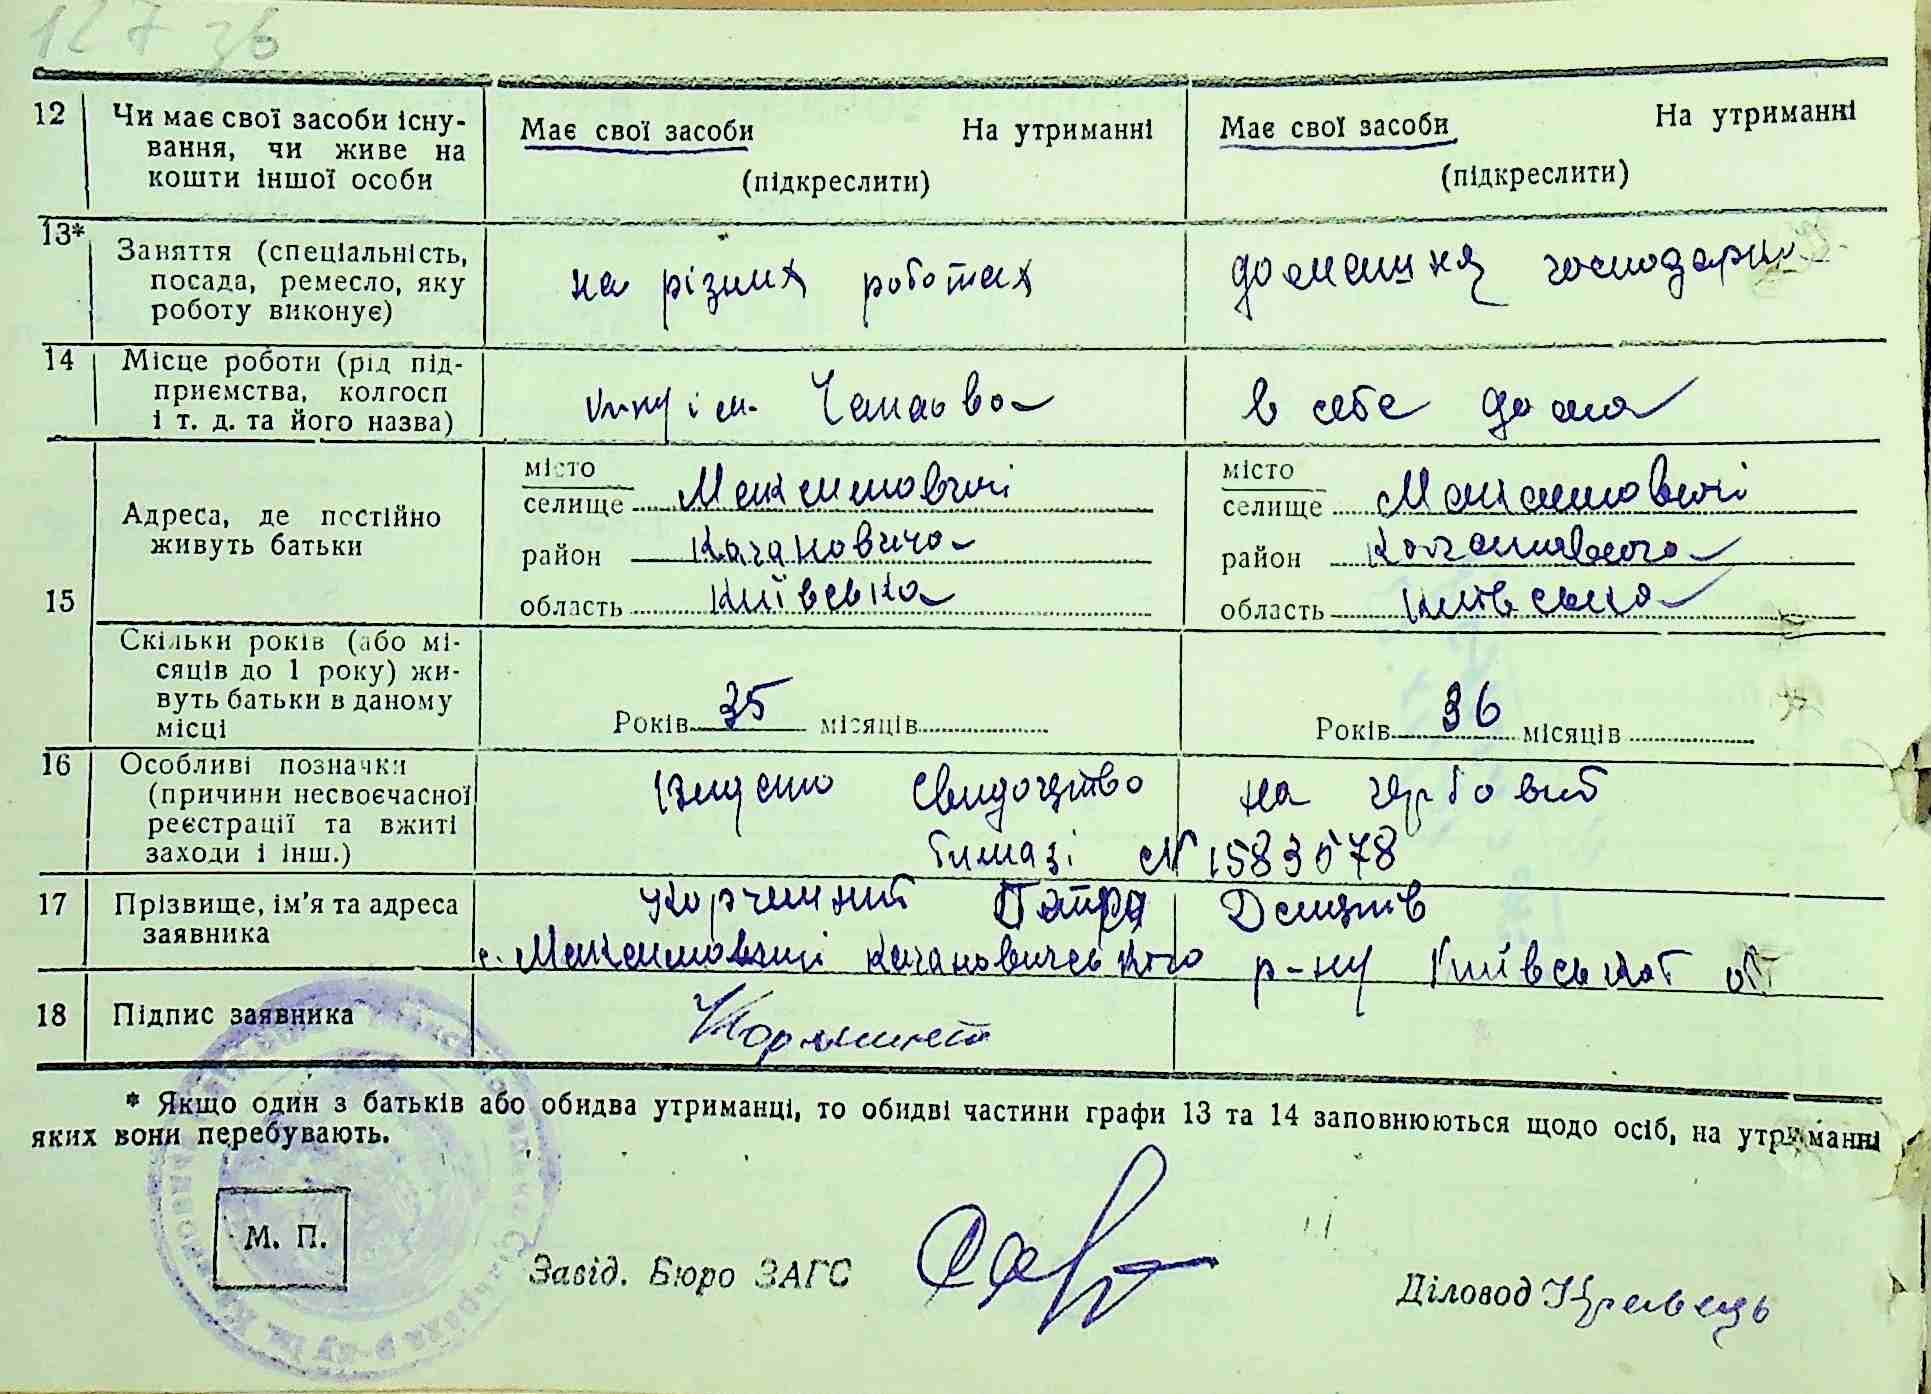 127 зв
12 Чи має свої засоби існу-
вання, чи живе на
кошти іншої особи
Має свої засоби На утриманні
(підкреслити)
Має свої засоби На утриманні
(підкреслити)
13* Заняття (спеціальність,
посада, ремесло, яку
роботу виконує)
на різних роботах
домашня господарк
14 Місце роботи (рід під-
приємства, колгосп
і т. д. та його назва)
ім. Чапаєва
в себе дома
15 Адреса, де постійно
живуть батьки
місто
селище Максимовичі
район Кагановича
область Київська
місто
селище Максимовичі
район Кагановича
область Київська
Скільки років (або мі-
сяців до 1 року) жи-
вуть батьки в даному
місці
Років 35 місяців
Років 36 місяців
16 Особливі позначки
(причини несвоєчасної
реєстрації та вжиті
заходи і інш.)
Видано свидоцтво на гербовій
бумазі № 1583078
17 Прізвище, ім'я та адреса
заявника
Корчинний Петро
с. Максимовичі Кагановичського р-ну Київської обл
18 Підпис заявника
* Якщо один з батьків або обидва утриманці, то обидві частини графи 13 та 14 заповнюються щодо осіб, на утриманні
яких вони перебувають.
М. П.
Завід. Бюро ЗАГС
Діловод Кравець